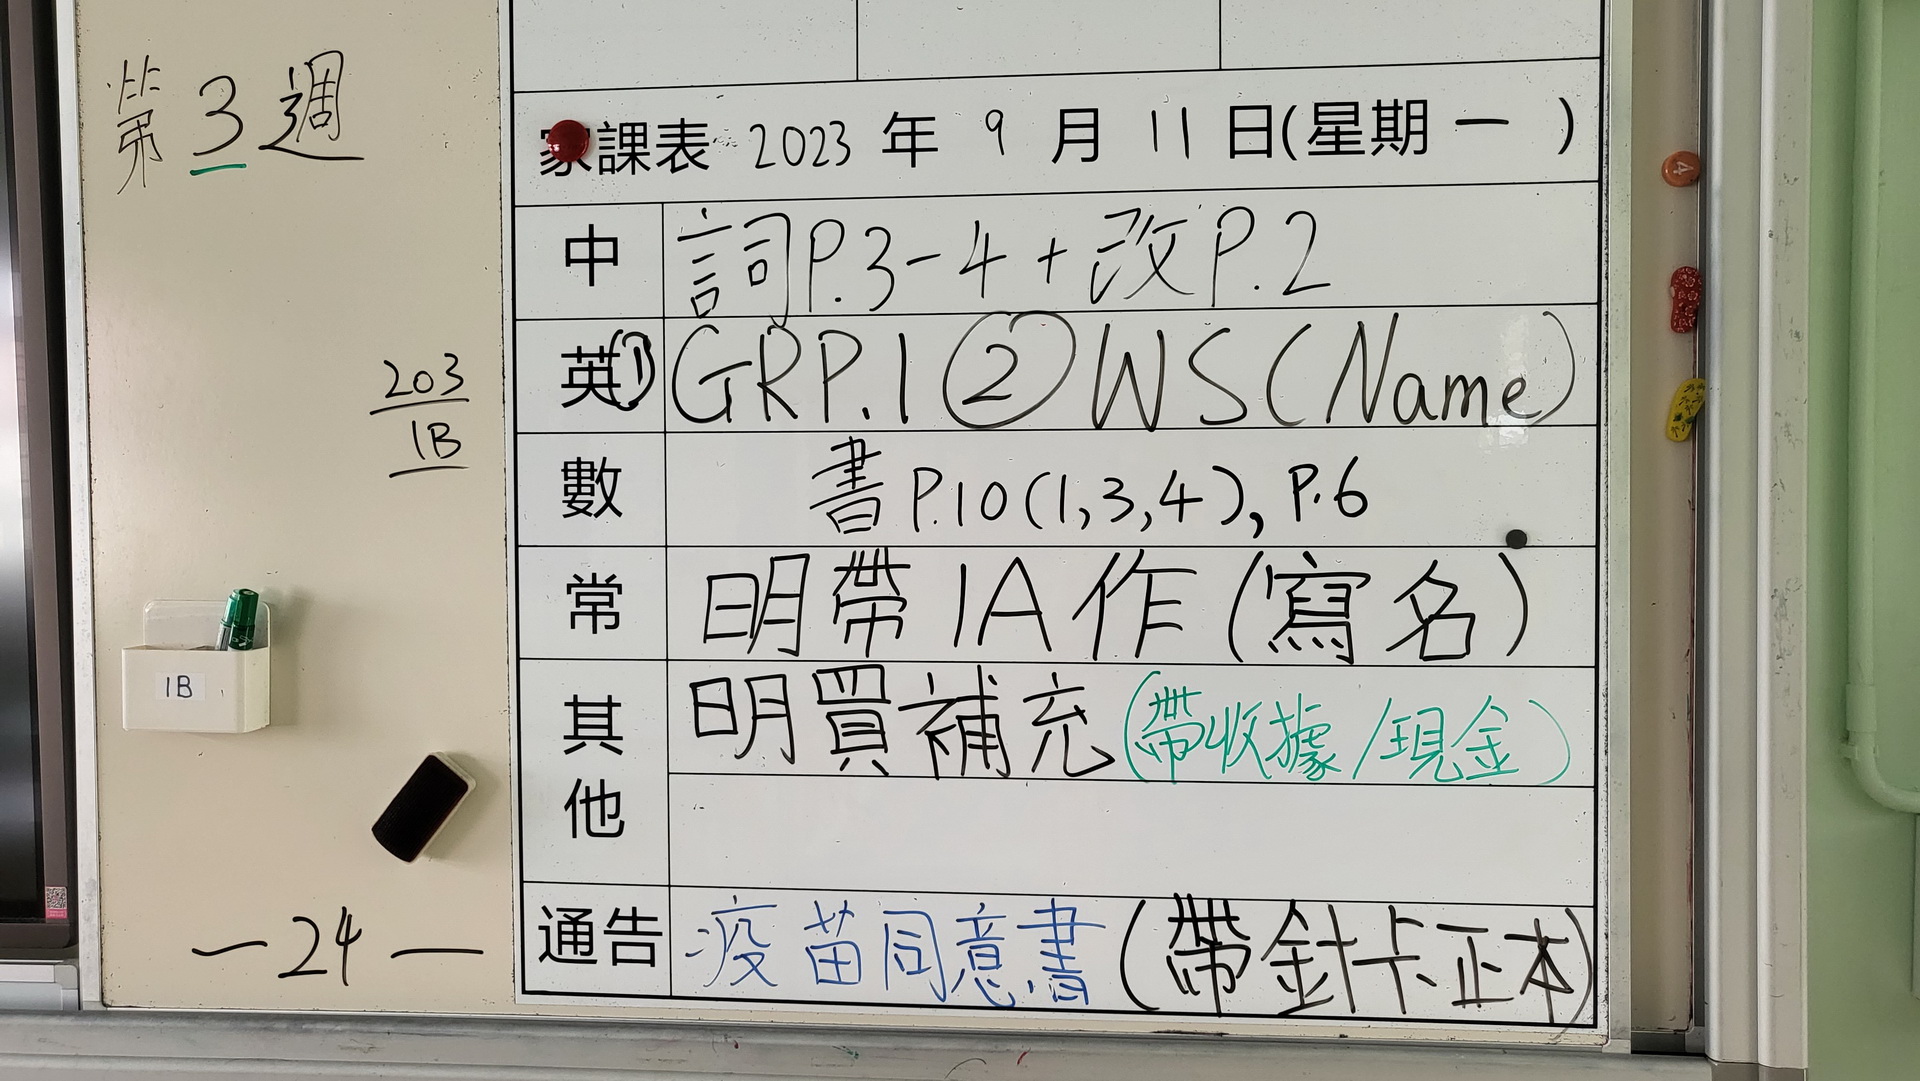 第3週
203
1B
1B
-24-
家課表 2023 年 9 月 11 日(星期一 )
中 詞P.3-4+改P.2
英 ①GRP.1 ②WS(Name)
數 書P.10(1,3,4), P.6
常 明帶1A作(寫名)
其他 明買補充(帶收據/現金)
通告 疫苗同意書(帶針卡正本)
4